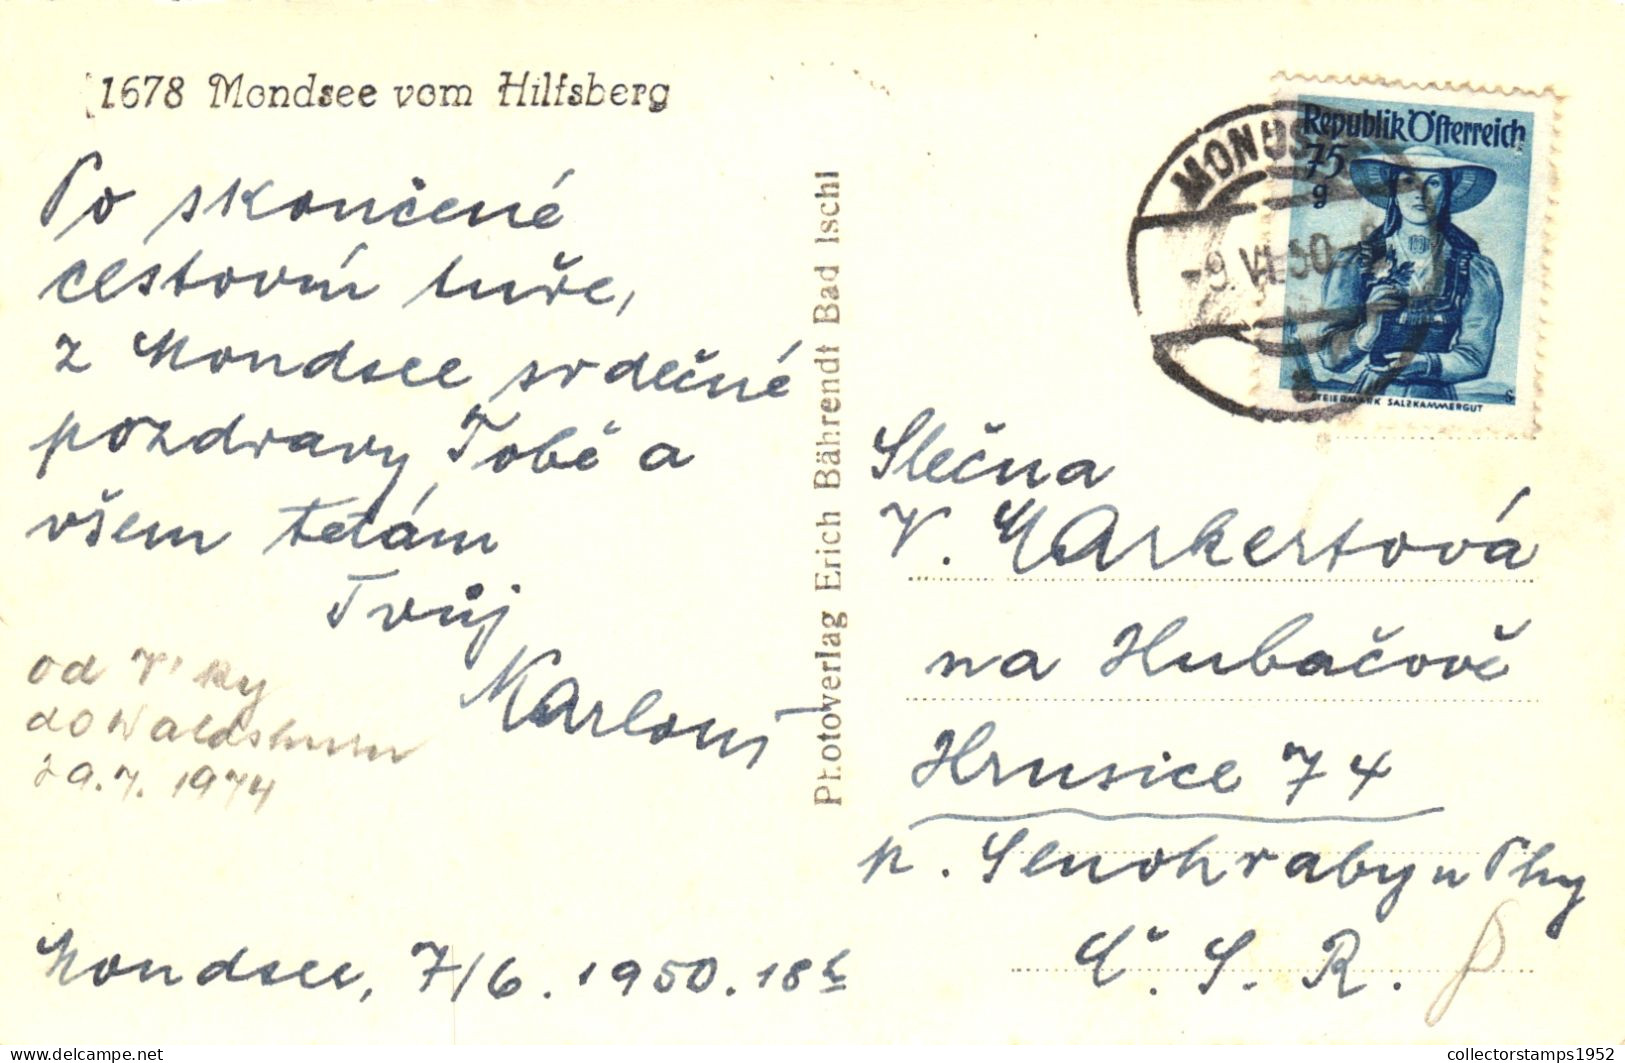 1678 Mondsee vom Hilfsberg
Po skončené
cestovní tuře,
z Mondsee srdečné
pozdravy Tobě a
všem tetám
Tvůj
Karlouš
od V' ky
do Waldshuru
29.7. 1974
Mondsee, 7/6. 1950. 18h
Photoverlag Erich Bährendt Bad Ischl
Republik Österreich
75
g
STEIERMARK SALZKAMMERGUT
MONDS
-9. VI. 50-
a
Slečna
V. Markertová
na Hubačově
Hrusice 74
p. Senohraby u Phy
Č. S. R.
collectorstamps1952